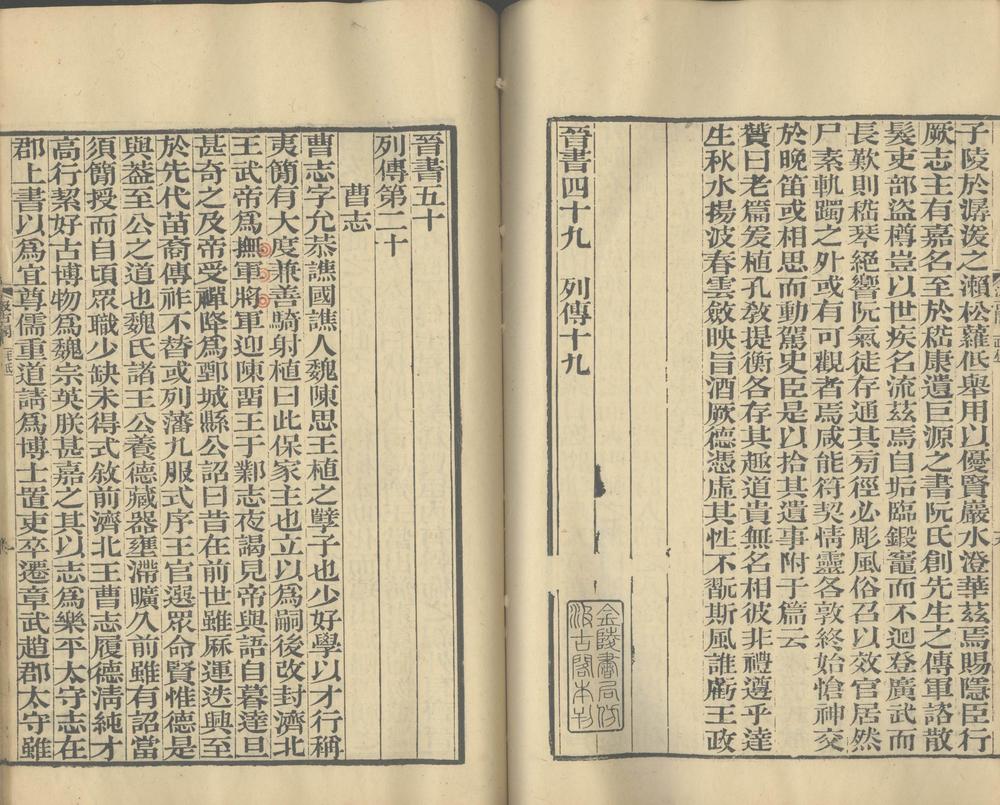 子陵於潺湲之瀨松蘿低舉用以優賢巖水澄華茲焉賜隱臣行
厥志主有嘉名至於嵇康遺巨源之書阮氏創先生之傳軍諮散
髮吏部盜樽豈以世疾名流茲焉自垢臨鍛竈而不迴登廣武而
長歎則嵇琴絕響阮氣徒存通其旁徑必彫風俗召以效官居然
尸素軌躅之外或有可觀者焉咸能符契情靈各敦終始愴神交
於晚笛或相思而動駕史臣是以拾其遺事附于篇云
贊曰老篇爰植孔教提衡各存其趣道貴無名相彼非禮遵乎達
生秋水揚波春雲斂映旨酒厥德憑虛其性不翫斯風誰虧王政
晉書四十九　列傳十九
金陵書局仿
汲古閣本刊
晉書五十
列傳第二十
曹志
曹志字允恭譙國譙人魏陳思王植之孽子也少好學以才行稱
夷簡有大度兼善騎射植曰此保家主也立以爲嗣後改封濟北
王武帝爲撫軍將軍迎陳留王于鄴志夜謁見帝與語自暮達旦
甚奇之及帝受禪降爲鄄城縣公詔曰昔在前世雖厤運迭興至
於先代苗裔傳祚不替或列藩九服式序王官選眾命賢惟德是
與葢至公之道也魏氏諸王公養德藏器壅滯曠久前雖有詔當
須簡授而自頃眾職少缺未得式敘前濟北王曹志履德淸純才
高行絜好古博物爲魏宗英朕甚嘉之其以志爲樂平太守志在
郡上書以爲宜尊儒重道請爲博士置吏卒遷章武趙郡太守雖